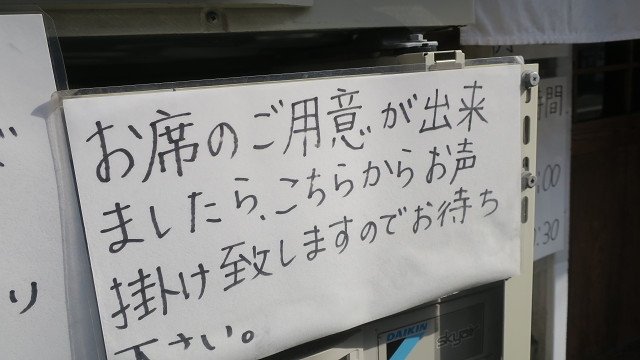 お席のご用意が出来
ましたら、こちらからお声
掛け致しますのでお待ち
下さい。
り
間
:00
:30
DAIKIN